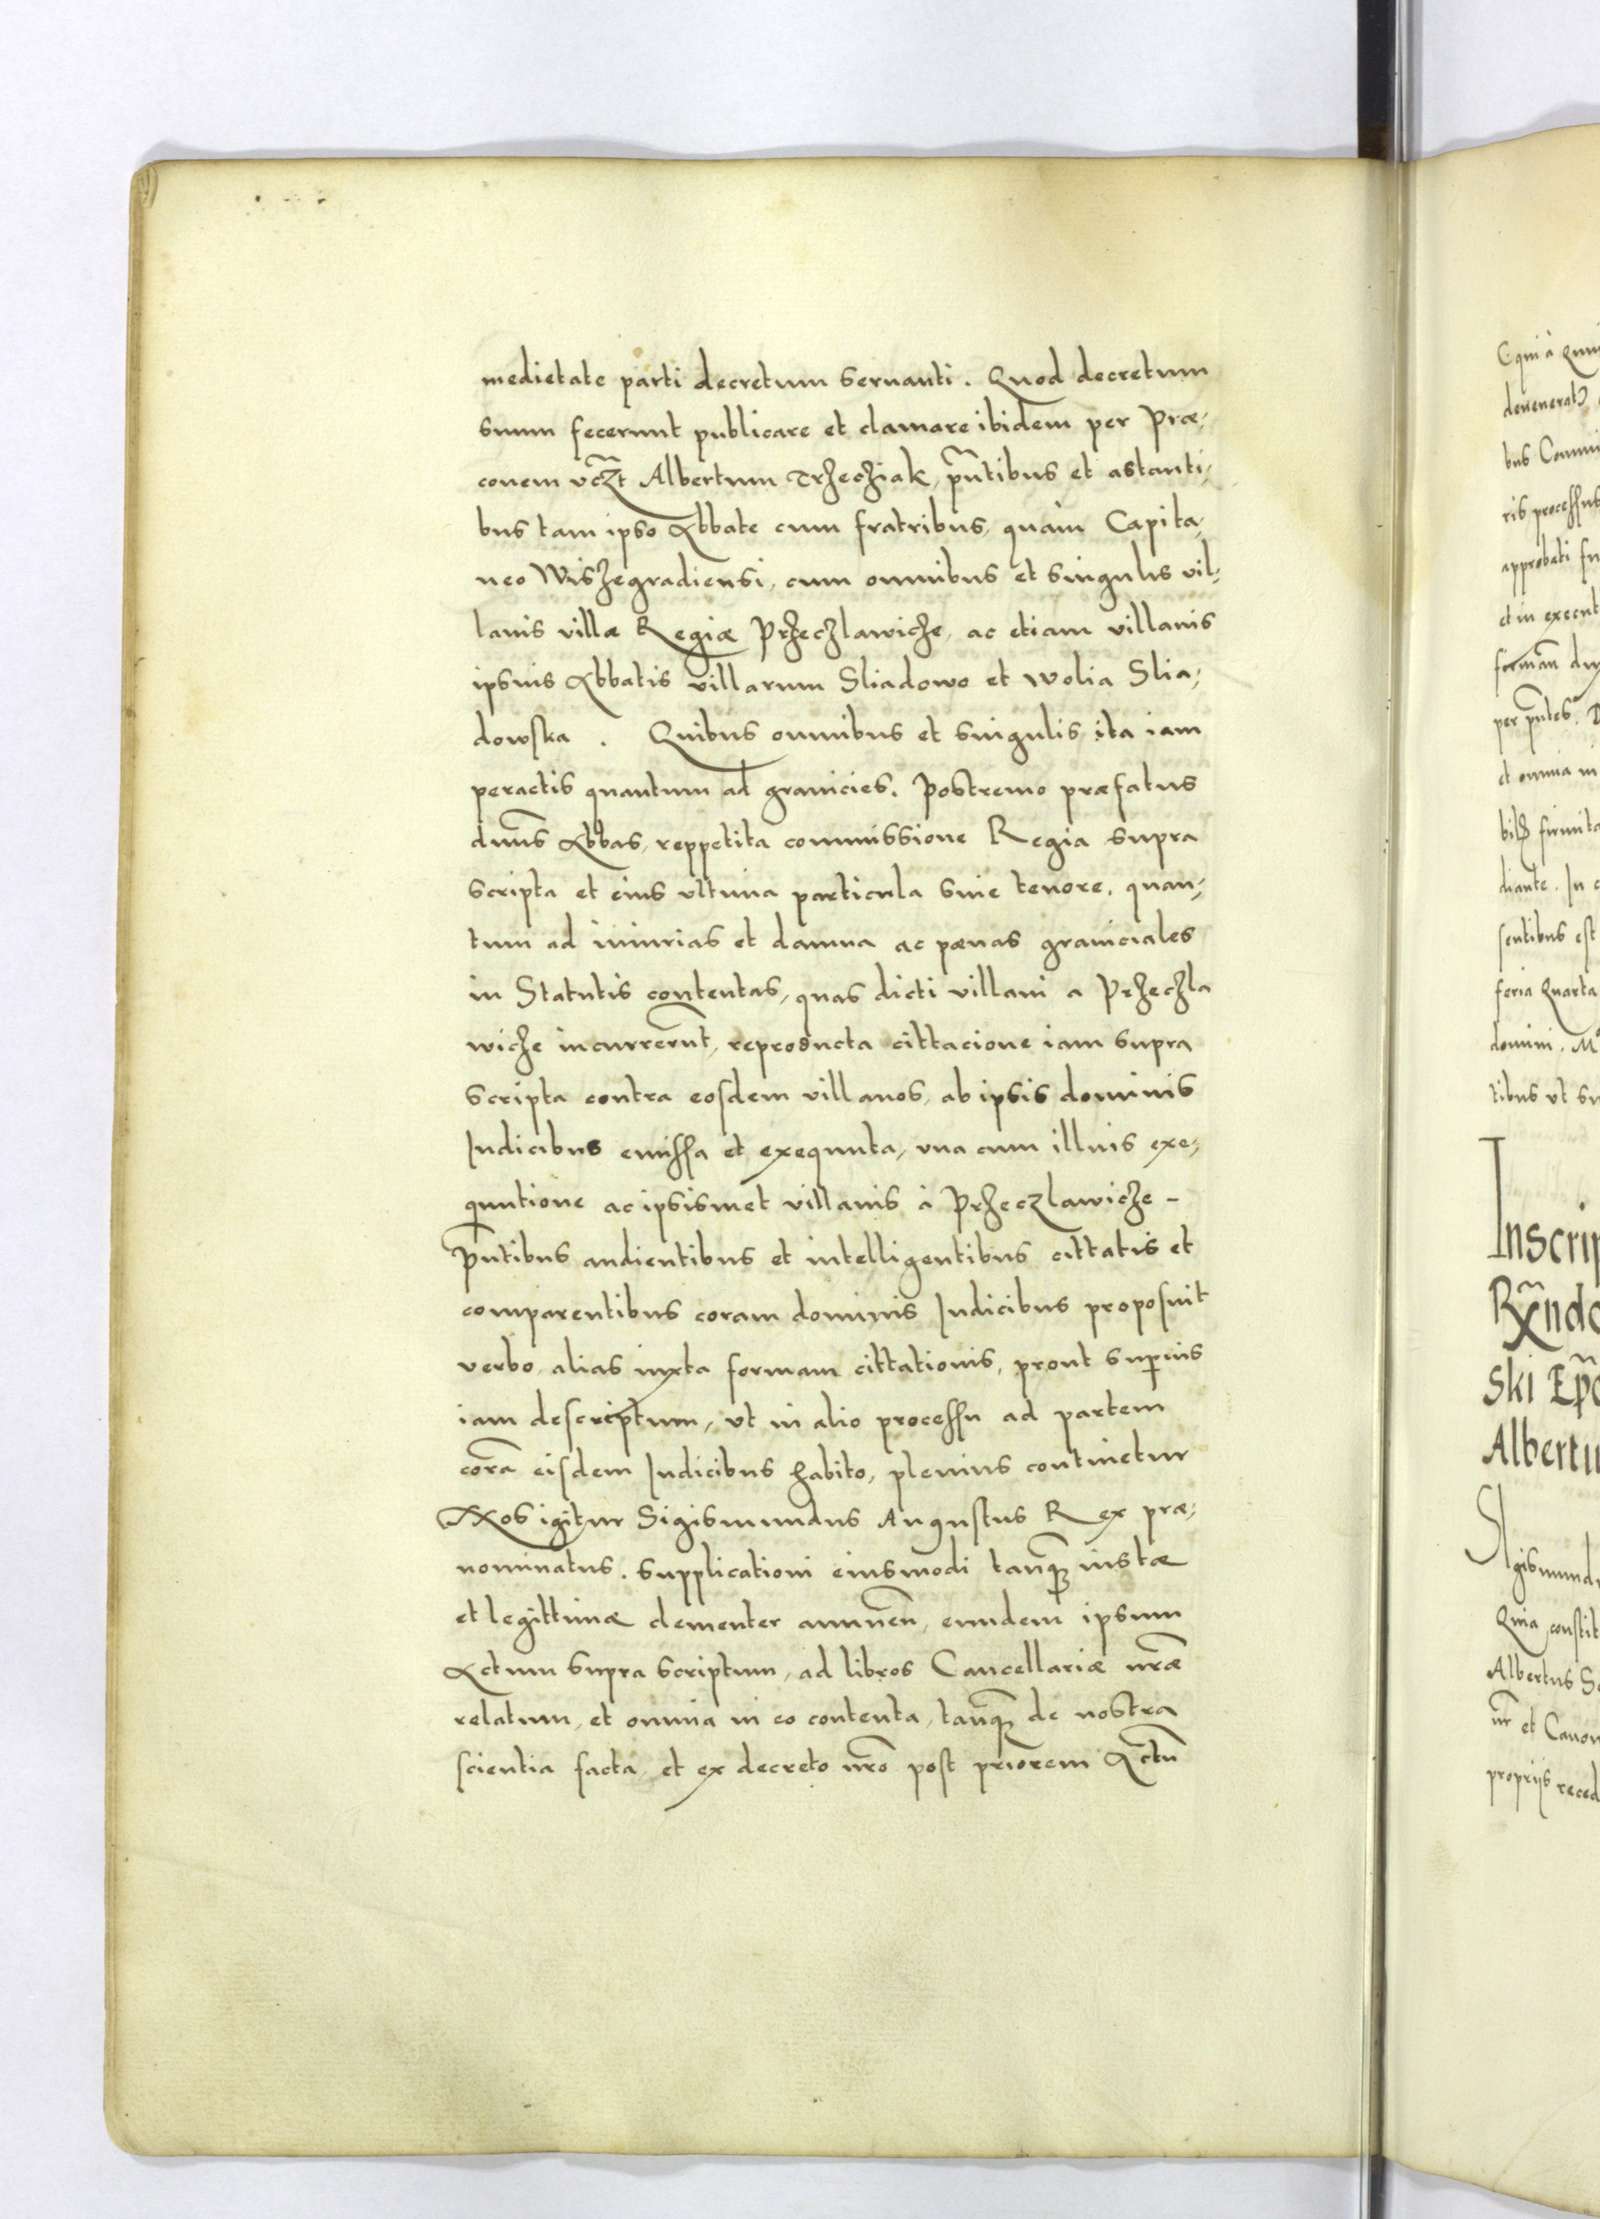 medietate parti decretum seruanti. Quod decretum
suum fecerunt publicare et clamare ibidem per Præ-
conem včzt Albertum Trzecziak, pñtibus et astanti-
bus tam ipso Abbate cum fratribus, quàm Capita-
neo Wiszegradiensi, cum omnibus et singulis vil-
lanis villæ Regiæ Przeczlawicze, ac etiam villanis
ipsius Abbatis villarum Sliadowo et Wolia Slia-
dowska. Quibus omnibus et singulis ita iam
peractis quantum ad granicies. Postremo præfatus
dnus Abbas, reppetita commissione Regia supra
scripta et eius vltima particula siue tenore, quan-
tum ad iniurias et damna ac pænas graniciales
in Statutis contentas, quas dicti villani a Przeczla
wicze incurrerũt, reproducta cittacione iam supra
scripta contra eosdem villanos, ab ipsis dominis
Iudicibus emissa et exequuta, vna cum illius exe-
quutione ac ipsismet villanis à Przeczlawicze -
pñtibus audientibus et intelligentibus cittatis et
comparentibus coram dominis Iudicibus proposuit
verbo, alias iuxta formam cittationis, prout superius
iam descriptum, vt in alio processu ad partem
corã eisdem Iudicibus habito, plenius continetur
Nos igitur Sigismundus Augustus Rex præ-
nominatus. supplicationi eiusmodi tanq̃ iustæ
et legittimæ clementer annueñ, eundem ipsum
Actum supra scriptum, ad libros Cancellariæ nr̃æ
relatum, et omnia in eo contenta, tanq̃ de nostra
scientia facta, et ex decreto nr̃o post priorem Actũ
Inscrip
Albertu
Albertus